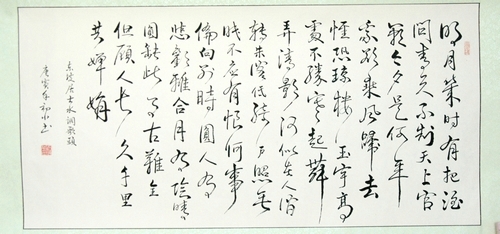 明月幾时有把酒
问青天不知天上宫
阙今夕是何年
我欲乘風歸去
惟恐瓊楼玉宇高
處不勝寒起舞
弄清影何似在人间
转朱阁低绮户照无
眠不应有恨何事
偏向别時圆人有
悲歡離合月有陰晴
圆缺此事古難全
但愿人长久千里
共嬋娟
东坡居士水调歌頭
庚寅春